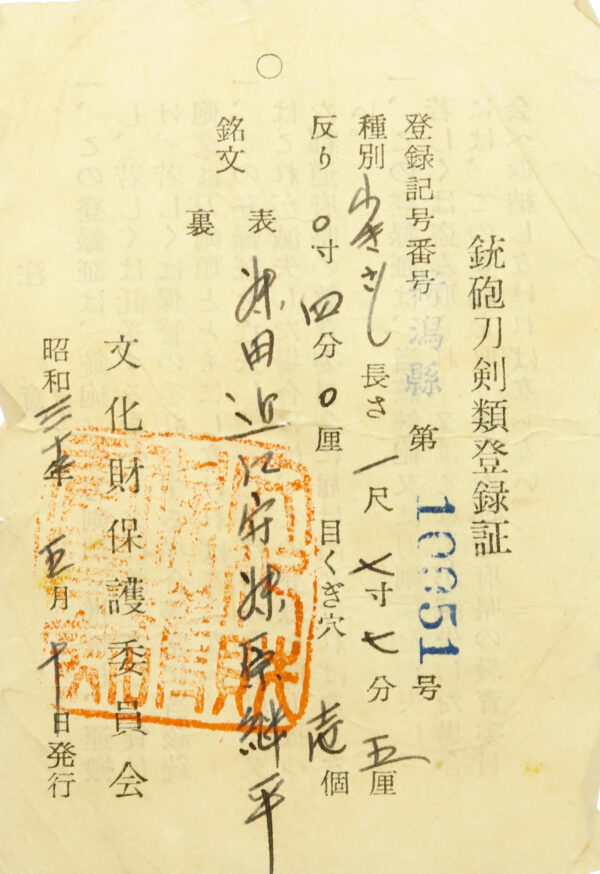 銃砲刀剣類登録証
登録記号番号 新潟縣 第 号
種別 わきさし 長さ 一尺 寸七分五厘
反り 〇寸四分〇厘 目くぎ穴 壱個
銘文 表 藤田近江守藤原継平
裏
文化財保護委員会
昭和三十年五月十日発行